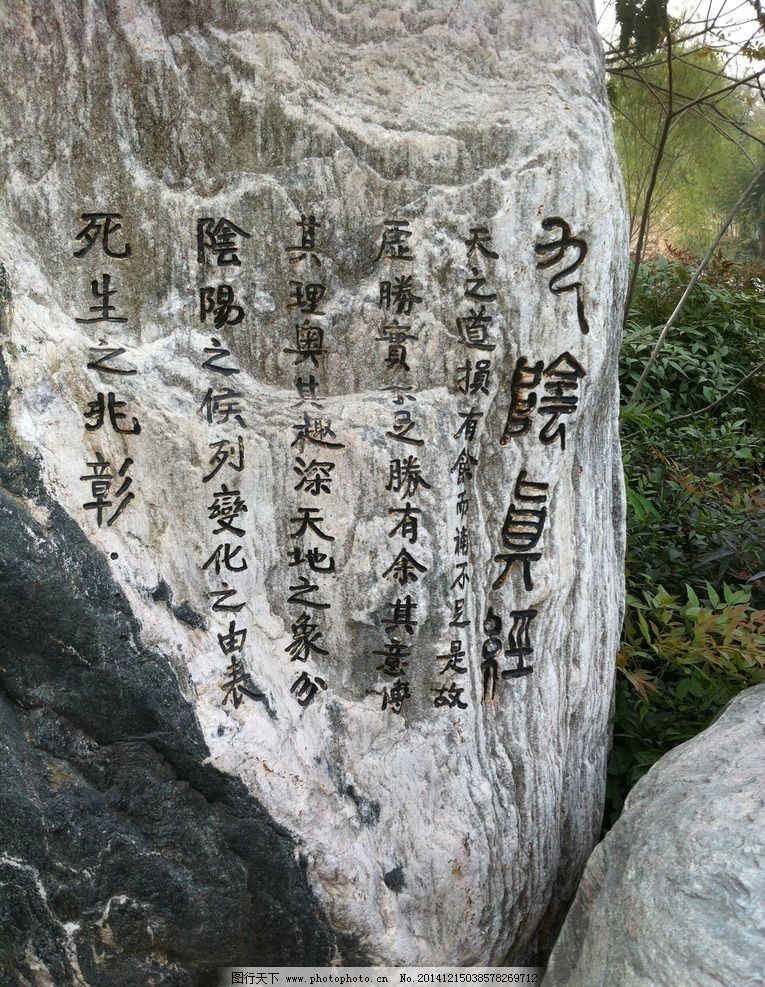 九陰真經
天之道損有餘而補不足是故
虛勝實不足勝有余其意博
其理奧其趣深天地之象分
陰陽之候列變化之由表
死生之兆彰.
图行天下 www.photophoto.cn No.20141215038578269712